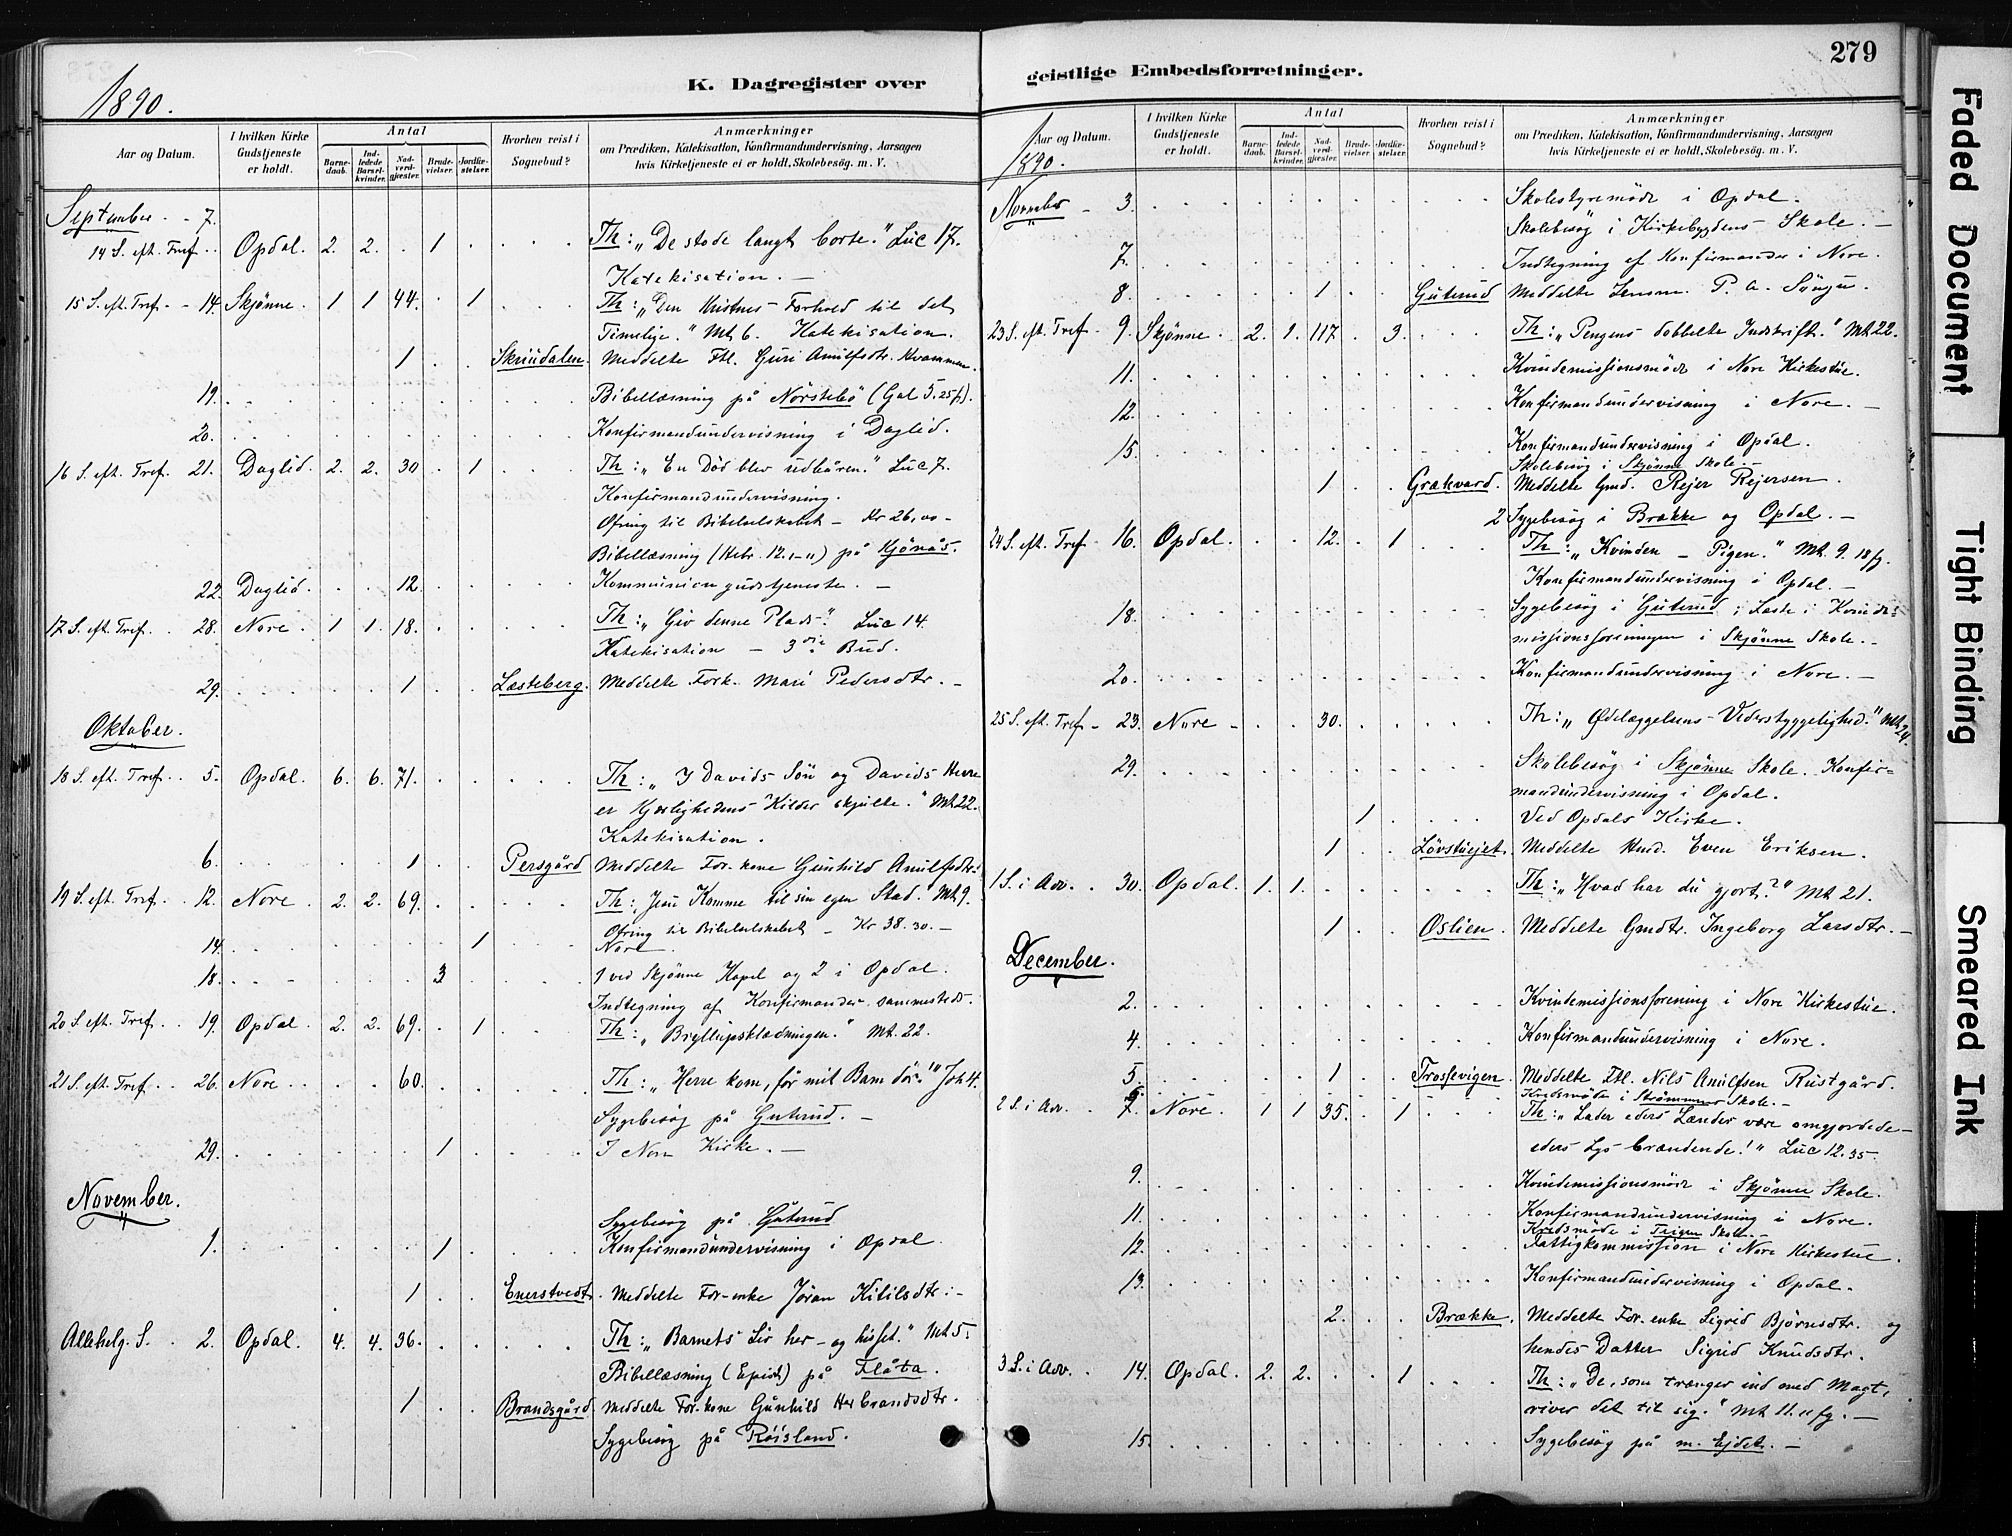 279
K. Dagregister over
geistlige Embedsforretninger.
1890.
Aar og Datum.
I hvilken Kirke Gudstjeneste er holdt.
Antal
Barnedaab.
Indledede Barselkvinder.
Nadverdgjæster.
Brudevielser.
Jordfæstelser.
Hvorhen reist i Sognebud?
Anmærkninger
om Prædiken, Katekisation, Konfirmandundervisning, Aarsagen
hvis Kirketjeneste ei er holdt, Skolebesøg. m. V.
September - 7.
14 S. eft. Tref. Opdal. 2. 2. 1 Th: "De stode langt borte." Luc 17.
Katekisation. —
15 S. eft. Tref. - 14. Skjønne. 1 1 44. 1 Th: "Den Kristnes Forhold til det
Timelige." Mt 6. Katekisation.
1 Skriudalen. Meddelte Ftl. Guri Arnulfsdtr. Kvammen.
19. Bibellæsning på Nørstebö (Gal 5.25 f).
20. Konfirmandundervisning i Daglid.
16 S. eft. Tref. 21. Daglid. 2. 2. 30 1 Th: "En Død blev udbåren." Luc 7.
Konfirmandundervisning.
Ofring til Bibelselskabet - Kr 26,00 -
Bibellæsning (Hebr. 12.1-11) på Kjönås.
22. Daglid. 12. Kommuniongudstjeneste. —
17 S. eft. Tref. 28. Nore. 1 1. 18. Th: "Giv denne Plads." Luc 14.
Katekisation — 3die Bud.
29. 1 Læsteberg. Meddelte Fork. Mari Pedersdtr. —
Oktober.
18 S. eft. Tref. 5. Opdal. 6. 6. 71. Th: "I Davids Søn og Davids Herre
er Kjærlighedens Kilder skjulte." Mt 22.
Katekisation.
6. 1 Persgård Meddelte For. kone Gunhild Arnulfsdtr.
19 S. eft. Tref. 12. Nore. 2. 2. 69. Th: Jesu Komme til sin egen Stad. Mt 9.
Ofring til Bibelselskabet - Kr 38.30. —
14. 1 Nore.
18. 3 1 ved Skjønne Kapel og 2 i Opdal.
Indtegning af Konfirmander sammesteds.
20 S. eft. Tref. 19. Opdal. 2. 2. 69. 1 Th: "Bryllupsklædningen." Mt. 22.
21 S. eft. Tref. 26. Nore. 60. Th: "Herre kom, før mit Barn dör!" Joh 4.
Sygebesøg på Guterud. —
29. 1 I Nore Kirke. —
November.
Sygebesøg på Guterud
1. 1 Konfirmandundervisning i Opdal.
1 Enerstvedt. Meddelte For-enke Jøran Kitilsdtr: -
Allehelg. S. 2. Opdal. 4. 4. 36. Th: "Barnets Liv her - og hisset." Mt 5.
Bibellæsning på Flåta.
1 Brandsgård Meddelte For. kone Gunhild Herbrandsdtr.
Sygebesøg på Röisland.
Aar og Datum.
1890.
I hvilken Kirke Gudstjeneste er holdt.
Antal
Barnedaab.
Indledede Barselkvinder.
Nadverdgjæster.
Brudevielser.
Jordfæstelser.
Hvorhen reist i Sognebud?
Anmærkninger
om Prædiken, Katekisation, Konfirmandundervisning, Aarsagen
hvis Kirketjeneste ei er holdt, Skolebesøg. m. V.
November - 3. Skolestyremøde i Opdal.
Skolebesög i Kirkebygdens Skole. —
7. Indtegning af Konfirmander i Nore.
8. 1 Guterud Meddelte
23 S. eft. Tref. 9. Skjønne. 2. 1. 117. 3. Th: "Pengens dobbelte Indskrift." Mt 22.
11. Kvindemissionsmøde i Nore Kirkestue.
12. Konfirmandundervisning i Nore. —
15. Konfirmandundervisning i Opdal.
Skolebesøg i Skjønne Skole. —
1 Grækvard. Meddelte Gmd. Rejer Rejersen.
2 Sygebesøg i Brække og Opdal. —
24 S. eft. Tref. 16. Opdal. 12. 1 Th: "Kvinden - Pigen." Mt 9. 18 fg.
Konfirmandundervisning i Opdal. —
18. Sygebesøg i Guterud; Læste i Kvinde-
missionsforeningen i Skjønne Skole. —
20. Konfirmandundervisning i Nore. —
25 S. eft. Tref. - 23. Nore - 30. Th: "Ødelæggelsens Vederstyggelighed." Mt 24.
29. Skolebesøg i Skjønne Skole. Konfir-
mandundervisning i Opdal.
1 Ved Opdals Kirke.
1 Lövstuejet. Meddelte Hmd. Even Eriksen.
1 S. i Adv. 30. Opdal. 1. 1. Th: "Hvad har du gjort?" Mt 21.
1 Oslien. Meddelte Gmdtr. Ingeborg Larsdtr. —
December.
2. Kvindemissionsforening i Nore Kirkestue.
4. Konfirmandundervisning i Nore.
5. 1 Trossevigen. Meddelte Ftl. Nils Arnulfsen Rustgård.
6. Kredsmöde i Strömmens Skole. —
2 S. i Adv. 7. Nore. 1 1 35. 1 Th: "Lader eders Lænder være omgjordede -
eders Lys brændende!" Luc 12.35.
9. Kvindemissionsmöde i Skjønne Skole.
11. Konfirmandundervisning i Nore.
Kredsmøde i Trigen Skole. —
12. Fattigkommission i Nore Kirkestue.
13. Konfirmandundervisning i Opdal.
2. Brække. Meddelte For. enke Sigrid Björnsdtr. og
hendes Datter Sigrid Knudsdtr.
3 S. i Adv. 14. Opdal. 2. 2. 1 Th: "De, som trænger ind med Magt,
river det til sig." Mt 11.11 fg. —
15. Sygebesøg på m. Ejdet. —
Faded Document
Tight Binding
Smeared Ink